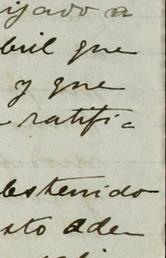 igado a
bril que
y que
ratifi
bstenido
sto ade